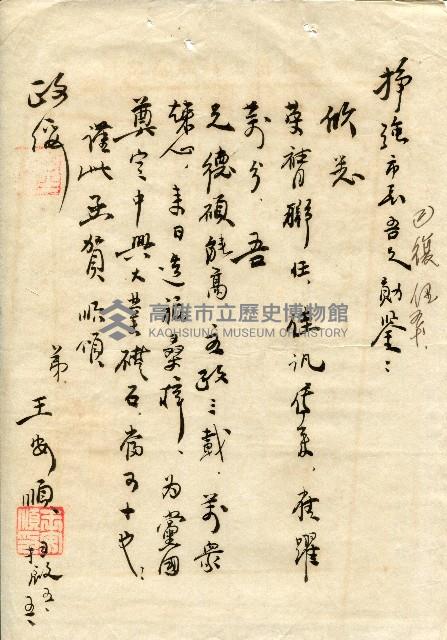 市長吾兄勛鑒：
欣悉
榮膺聯任，佳訊傳來，雀躍
萬分，吾
兄德碩能高，主政三載，萬眾
歸心，來日造福桑梓，為黨國
奠定中興大業礎石，當可卜也：
謹此函賀 順頌
政綏
弟 王安順
拜啟
高雄市立歷史博物館
KAOHSIUNG MUSEUM OF HISTORY